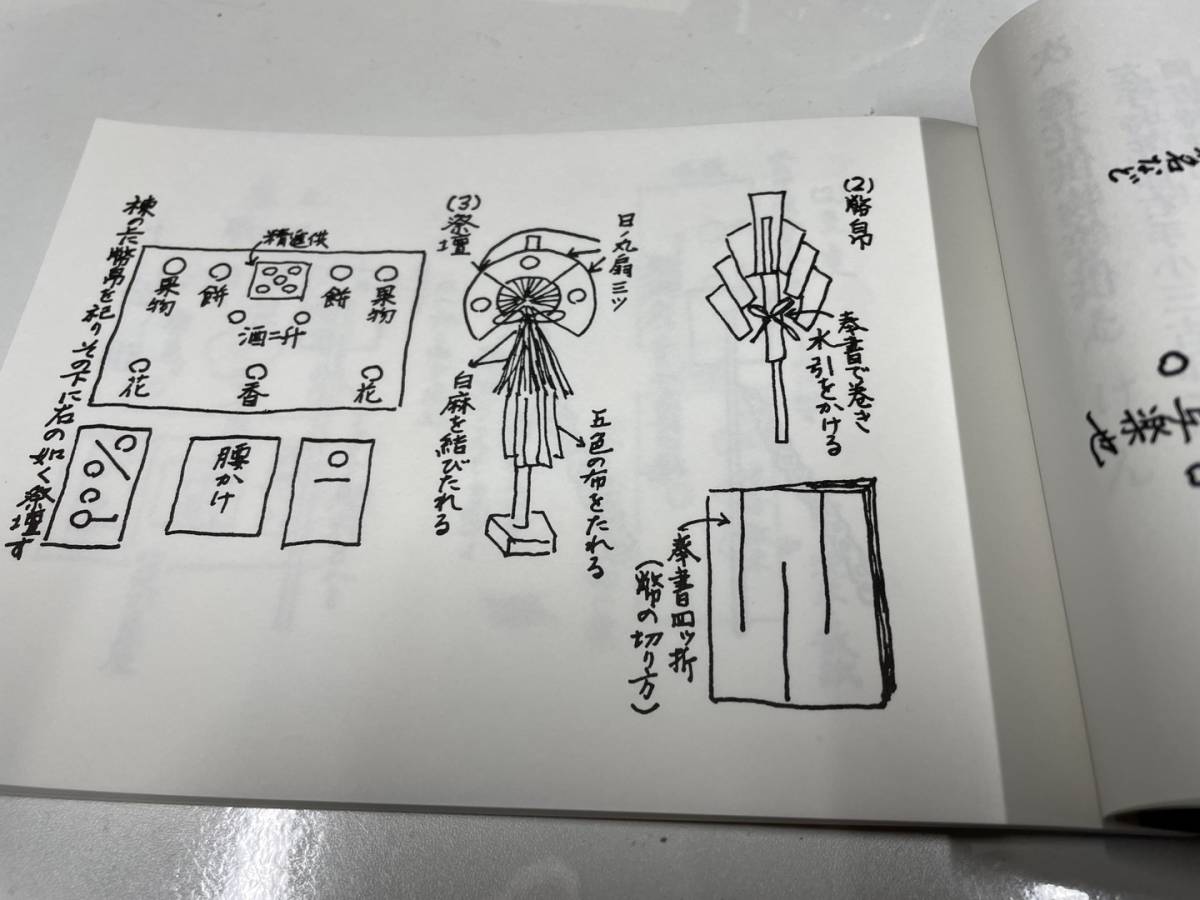 (2)幣帛
奉書で巻き
水引をかける
奉書四ッ折
(幣の切り方)
日ノ丸扇三ッ
五色の布をたれる
白麻を結びたれる
(3)祭壇
精進供
果物
餅
餅
果物
酒二升
花
香
花
腰かけ
棟の下に幣帛を祀りその下に右の如く祭壇す
名など